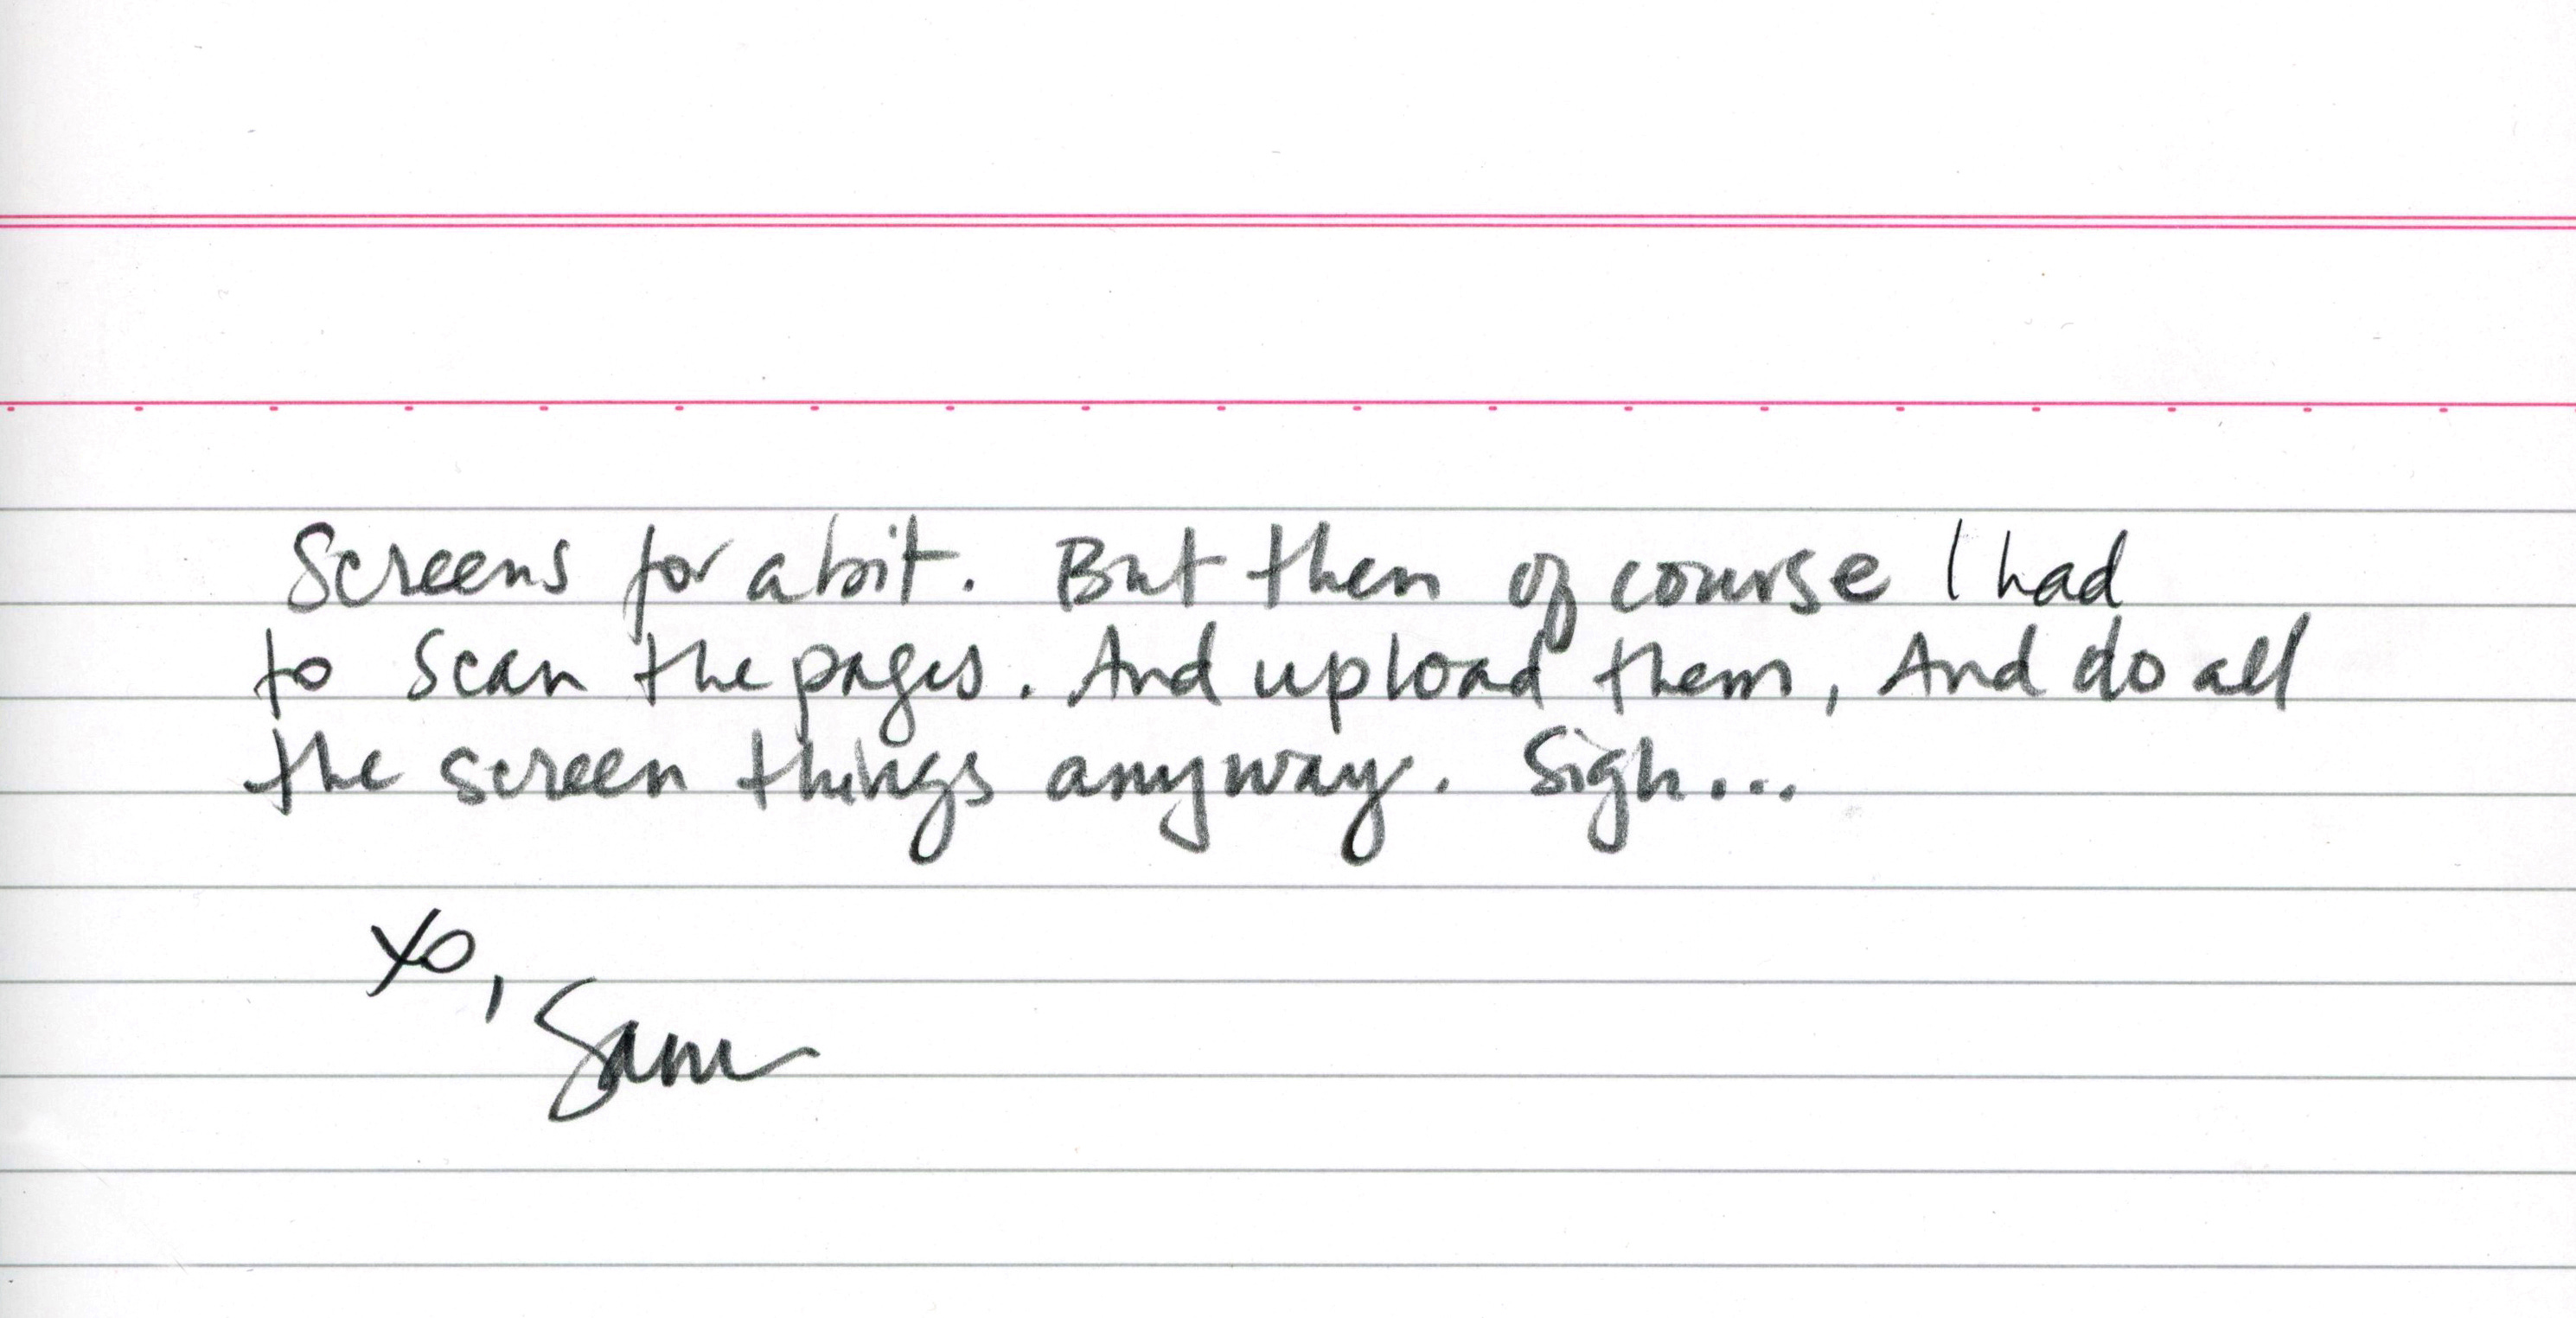 Screens for a bit. But then of course I had
to scan the pages. And upload them, And do all
the screen things anyway. Sigh...
xo,
Sam